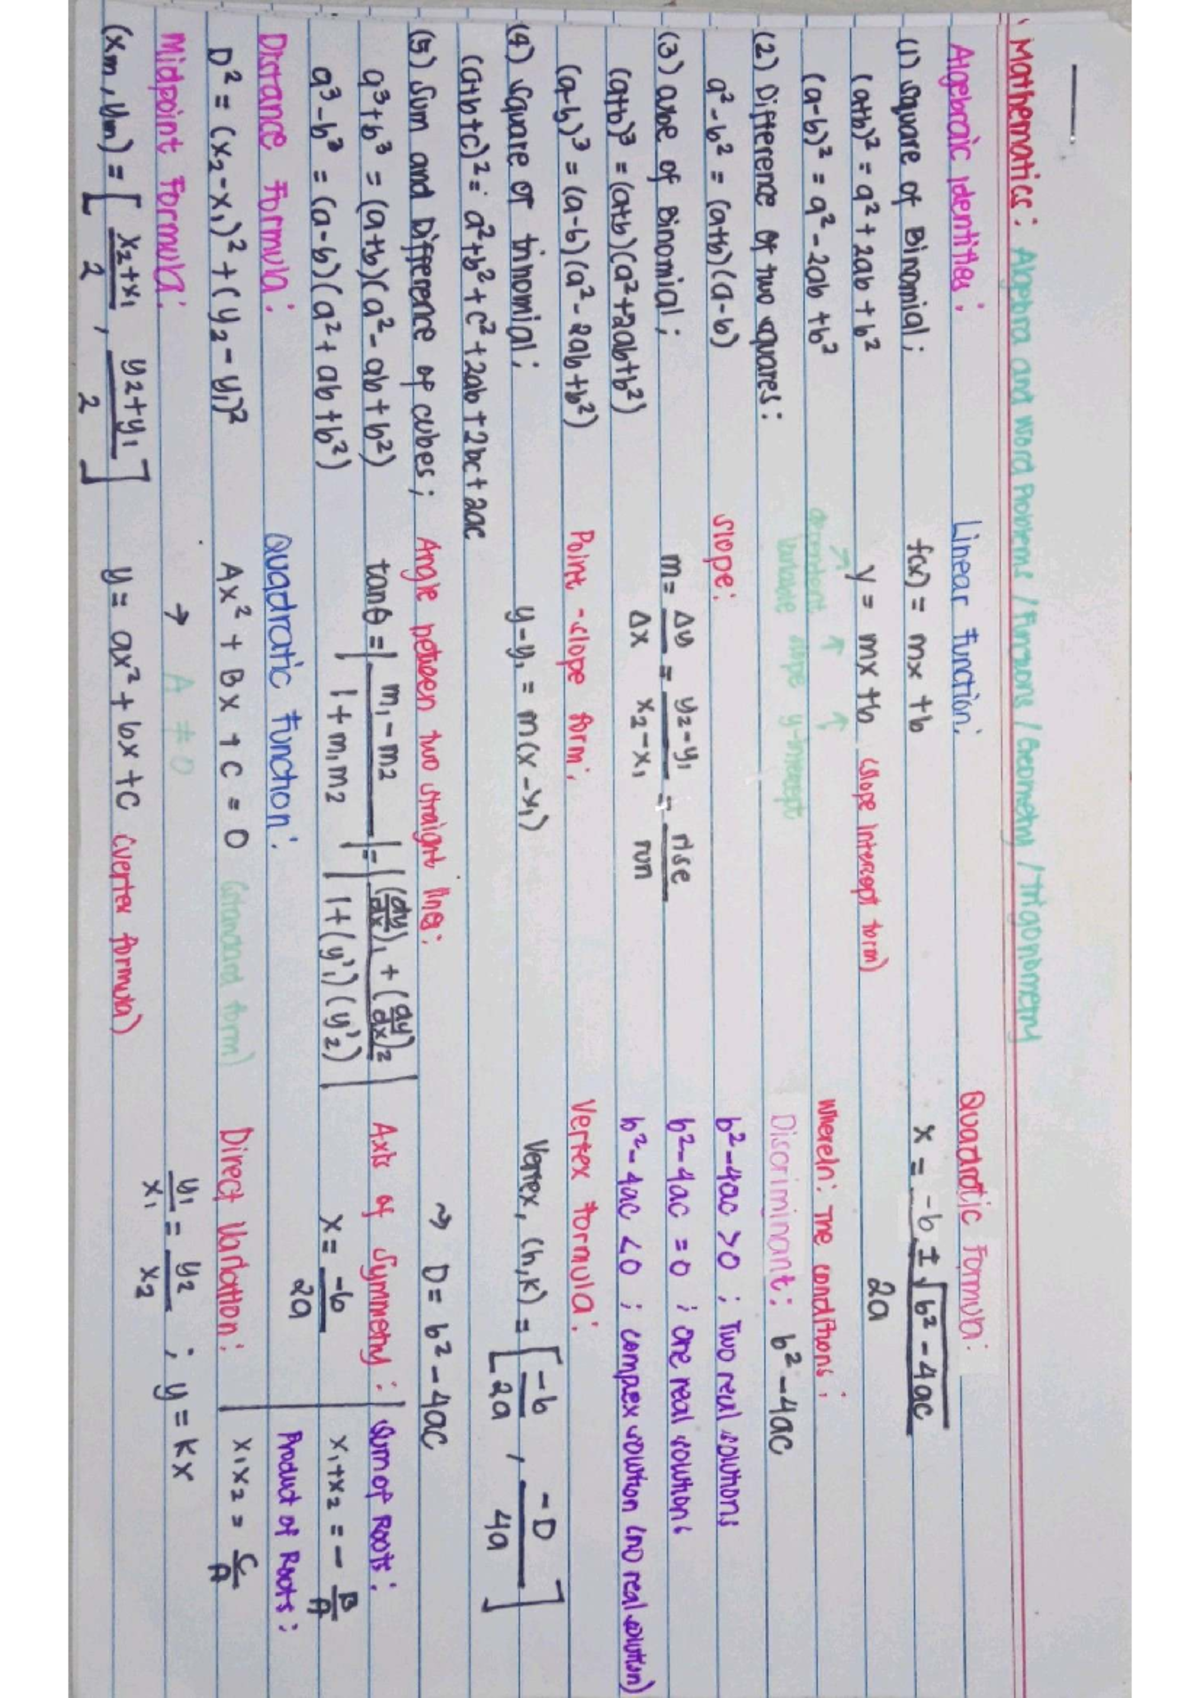 Mathematics: Algebra and Word Problems / Functions / Geometry / Trigonometry
Algebraic Identities:
(1) Square of Binomial;
(a+b)² = a² + 2ab + b²
(a-b)² = a² - 2ab + b²
(2) Difference of two squares:
a² - b² = (a+b)(a-b)
(3) cube of Binomial;
(a+b)³ = (a+b)(a²+2ab+b²)
(a-b)³ = (a-b)(a²-2ab+b²)
(4) Square of trinomial;
(a+b+c)² = a²+b²+c²+2ab+2bc+2ac
(5) Sum and Difference of cubes;
a³+b³ = (a+b)(a²-ab+b²)
a³-b³ = (a-b)(a²+ab+b²)
Distance Formula:
D² = (x₂-x₁)² + (y₂-y₁)²
Midpoint Formula:
(xm, ym) = [ x₂+x₁ / 2 , y₂+y₁ / 2 ]
Linear Function:
f(x) = mx + b
y = mx + b (slope intercept form)
dependent variable slope y-intercept
Slope:
m = Δy / Δx = y₂-y₁ / x₂-x₁ = rise / run
Point-slope form:
y-y₁ = m(x-x₁)
Angle between two straight lines:
tanθ = | m₁-m₂ / 1+m₁m₂ | = | (dy/dx)₁ + (dy/dx)₂ / 1+(y'₁)(y'₂) |
Quadratic Function:
Ax² + Bx + C = 0 (standard form)
→ A ≠ 0
y = ax² + bx + c (vertex formula)
Quadratic Formula:
x = -b ± √b²-4ac / 2a
Wherein: The conditions;
Discriminant: b²-4ac
b²-4ac > 0 ; Two real solutions
b²-4ac = 0 ; one real solutions
b²-4ac < 0 ; complex solution (no real solution)
Vertex Formula:
Vertex, (h,k) = [ -b / 2a , -D / 4a ]
⤳ D = b²-4ac
Axis of Symmetry:
x = -b / 2a
Sum of Roots:
x₁+x₂ = - B/A
Product of Roots:
x₁x₂ = C/A
Direct Variation:
y₁/x₁ = y₂/x₂ ; y = kx